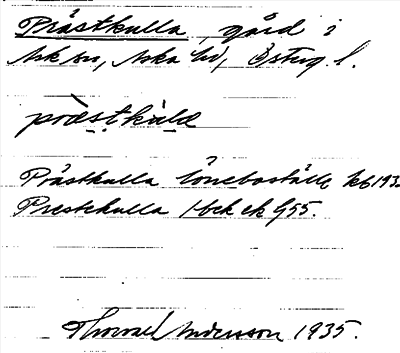 Prästkulla, gård i
Ask sn, Aska hd, Österg. l.
Prästkulla löneboställe kb 193
Prestekulla 1 bek ek G55.
Thorvald Andersson 1935.